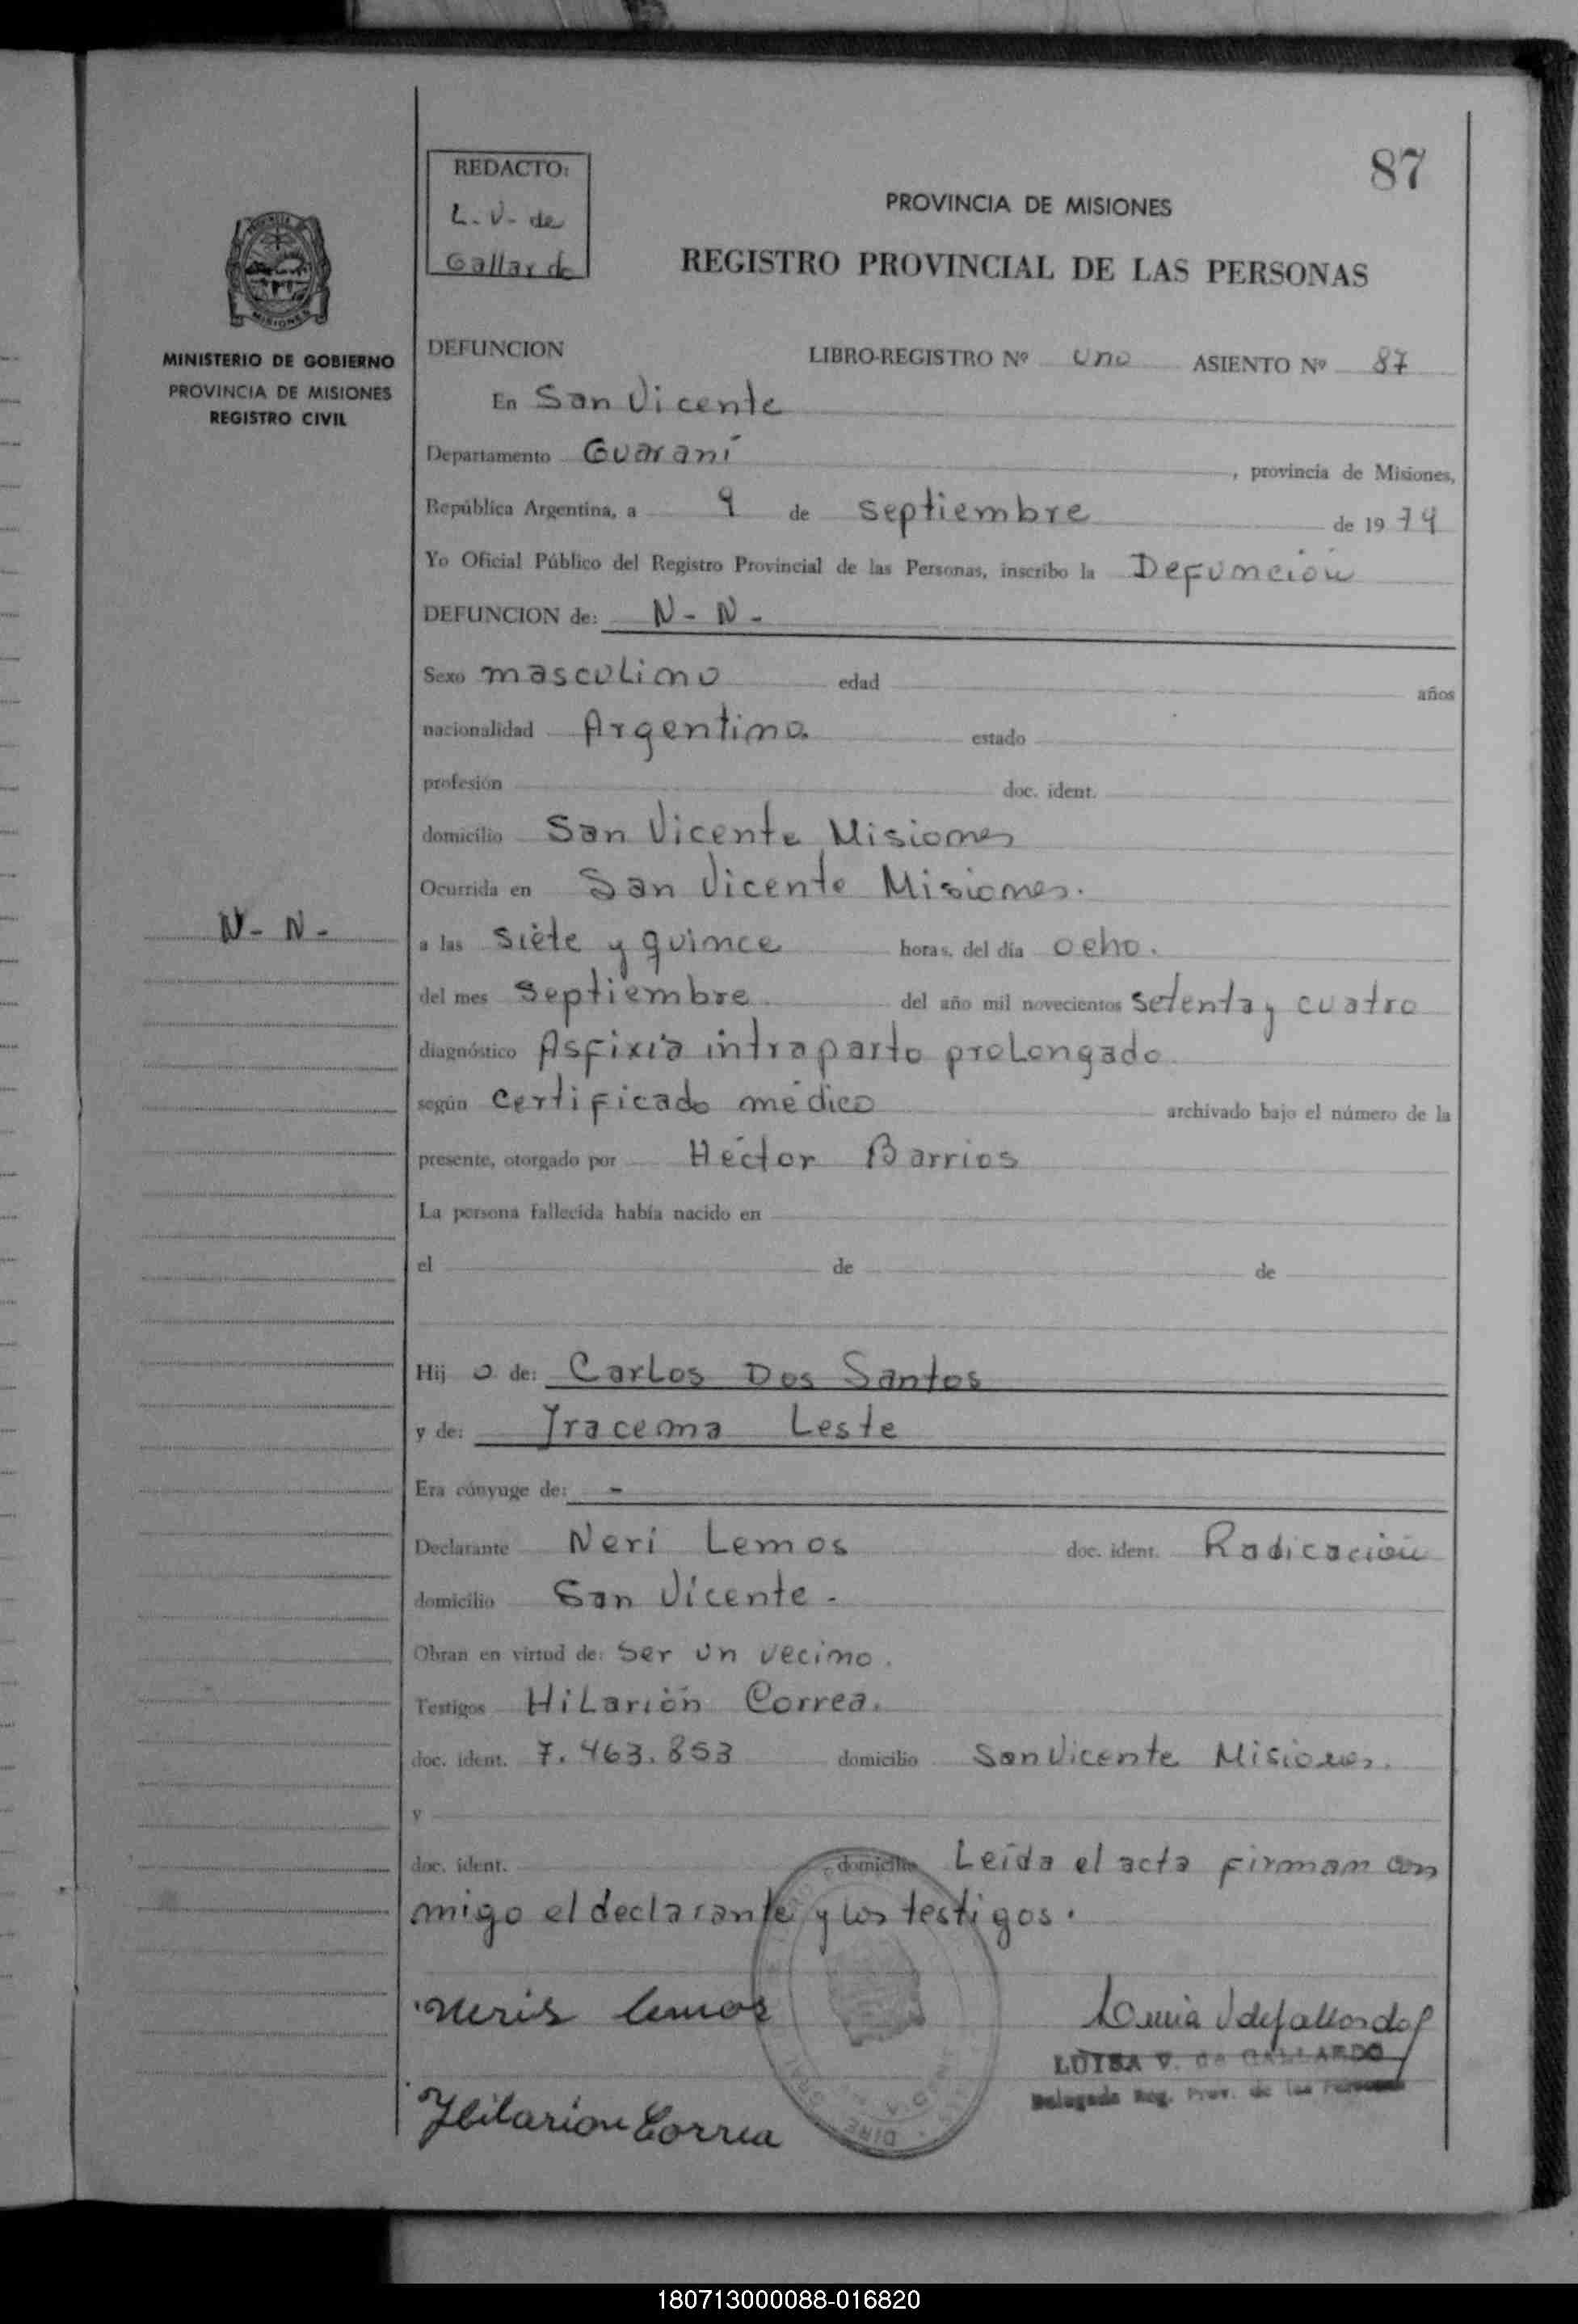 87
REDACTO:
L. V. de
Gallardo
PROVINCIA DE MISIONES
REGISTRO PROVINCIAL DE LAS PERSONAS
MISIONES
MINISTERIO DE GOBIERNO
PROVINCIA DE MISIONES
REGISTRO CIVIL
DEFUNCION LIBRO-REGISTRO Nº uno ASIENTO Nº 87
En San Vicente
Departamento Guaraní , provincia de Misiones,
República Argentina, a 9 de septiembre de 19 74
Yo Oficial Público del Registro Provincial de las Personas, inscribo la Defunción
DEFUNCION de: N - N -
Sexo masculino edad años
nacionalidad Argentina estado
profesión doc. ident.
domicilio San Vicente Misiones
Ocurrida en San Vicente Misiones.
N - N -
a las siete y quince horas, del día ocho.
del mes septiembre del año mil novecientos setenta y cuatro
diagnóstico Asfixia intraparto prolongado
según certificado médico archivado bajo el número de la
presente, otorgado por Héctor Barrios
La persona fallecida había nacido en
el de de
Hij o de: Carlos Dos Santos
y de: Iracema Leste
Era cónyuge de: -
Declarante Neri Lemos doc. ident. Radicación
domicilio San Vicente.
Obran en virtud de: ser un vecino.
Testigos Hilarión Correa.
doc. ident. 7.463.853 domicilio San Vicente Misiones.
y
doc. ident. domicilio Leída el acta firman con
migo el declarante y los testigos.
Neris Lemos
LUISA V. de GALLARDO
Delegada Reg. Prov. de las Personas
Hilarion Correa
180713000088-016820